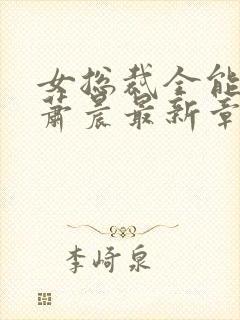 女总裁全能
萧晨最新章
李崎泉